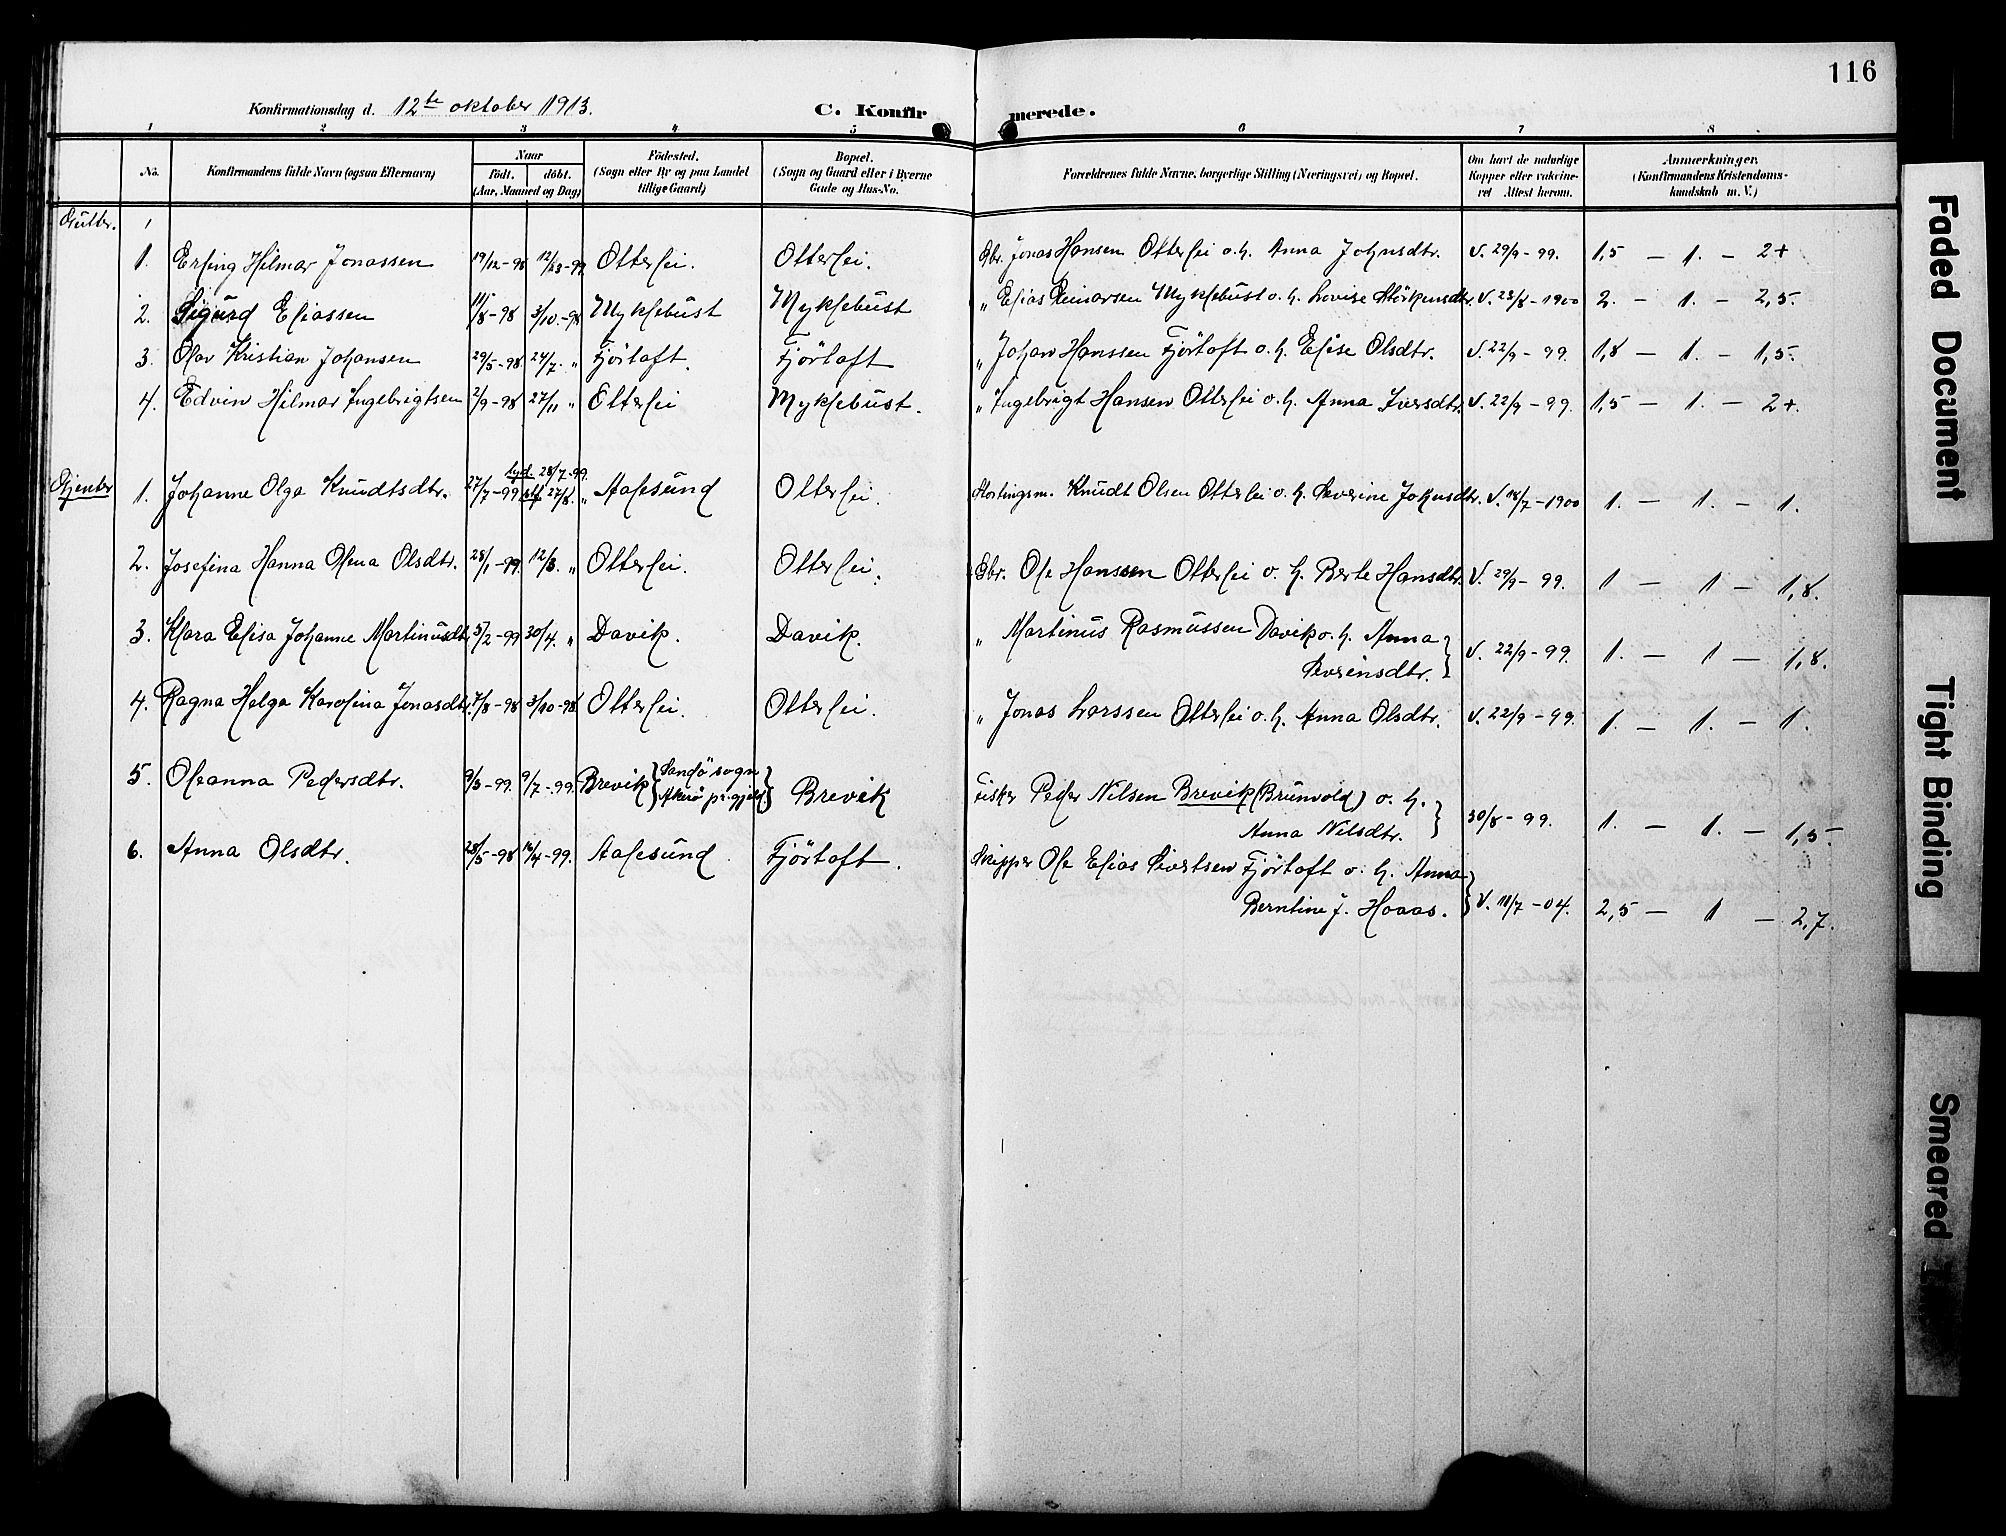 116
Konfirmationsdag d. 12te oktober 1913.
C. Konfirmerede.
1 2 3 4 5 6 7 8
No.
Konfirmandens fulde Navn (ogsaa Efternavn)
Naar
født. døbt.
(Aar, Maaned og Dag)
Fødested.
(Sogn eller By og paa Landet
tillige Gaard)
Bopæl.
(Sogn og Gaard eller i Byerne
Gade og Hus-No.
Forældrenes fulde Navne, borgerlige Stilling (Næringsvei) og Bopæl.
Om havt de naturlige
Kopper eller vakcine-
ret Attest herom.
Anmærkninger.
(Konfirmandens Kristendoms-
kundskab m. V.)
Gutter.
1. Erling Hilmar Jonassen 19/12-98 12/23-99 Otterlei. Otterlei. Gbr. Jonas Hansen Otterlei o.h. Anna Johnsdtr. V. 29/9-99. 1,5 – 1. – 2+
2. Sigurd Eliassen 11/8-98 3/10.-98 Myklebust Myklebust „ Elias Einarsen Myklebust o.h. Lovise V. 23/8-1900 2. – 1. – 2,5.
3. Olav Kristian Johansen 29/5-98 24/7. „ Fjørtoft. Fjørtoft „ Johan Hanssen Fjørtoft o.h. Elise Olsdtr. V. 22/9-99. 1,8 – 1. – 1,5.
4. Edvin Hilmar Ingebrigtsen 2/9-98 27/11 „ Otterlei Myklebust. „ Ingebrigt Hansen Otterlei o.h. Anna Iversdtr. V. 22/9-99. 1,5 – 1. – 2+.
Pjenter
1. Johanne Olga Knudtsdtr. 27/7-99 28/7-99. 27/8. „ Aalesund Otterlei. Knudt Olsen Otterlei o.h. Severine Johnsdtr. V. 18/7-1900 1. – 1. – 1.
2. Josefina Hanna Olena Olsdtr. 28/1-99. 12/3. „ Otterlei. Otterlei. Gbr. Ole Hanssen Otterlei o.h. Berte Hansdtr. V. 29/9-99. 1 – 1 – 1,8.
3. Klara Elisa Johanne Martinusdtr. 5/2-99 30/4. „ Davik. Davik. „ Martinus Rasmussen Davik o.h. Anna
Severinsdtr. V. 22/9-99. 1. – 1 – 1,8.
4. Ragna Helga Karolina Jonasdtr. 7/8-98 3/10-98 Otterlei. Otterlei. „ Jonas Larssen Otterlei o.h. Anna Olsdtr. V. 22/9-99. 1. – 1. – 1.
5. Oleanna Pedersdtr. 9/3-99. 9/7-99. Brevik Sandø sogn
Akerø pr.gjeld. Brevik Fisker Peder Nilsen Brevik (Brunvold) o.h.
Anna Nilsdtr. 30/8-99. 1. – 1. – 1,5.
6. Anna Olsdtr. 28/5-98 16/4-99. Aalesund Fjørtoft. Skipper Ole Elias Sivertsen Fjørtoft o.h. Anna
Berntine J. Hoaas. V. 11/7-04. 2,5 – 1 – 2,7.
Faded Document
Tight Binding
Smeared